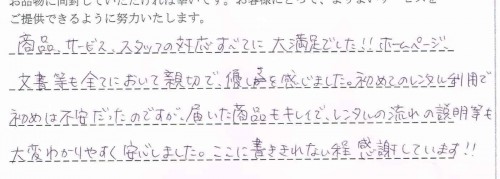 ご提供できるように努力いたします。
商品、サービス、スタッフの対応すべてに大満足でした!!ホームページ、
文書等も全てにおいて親切で、優しさを感じました。初めてのレンタル利用で
初めは不安だったのですが、届いた商品もキレイで、レンタルの流れの説明等も
大変わかりやすく安心しました。ここに書ききれない程感謝しています!!